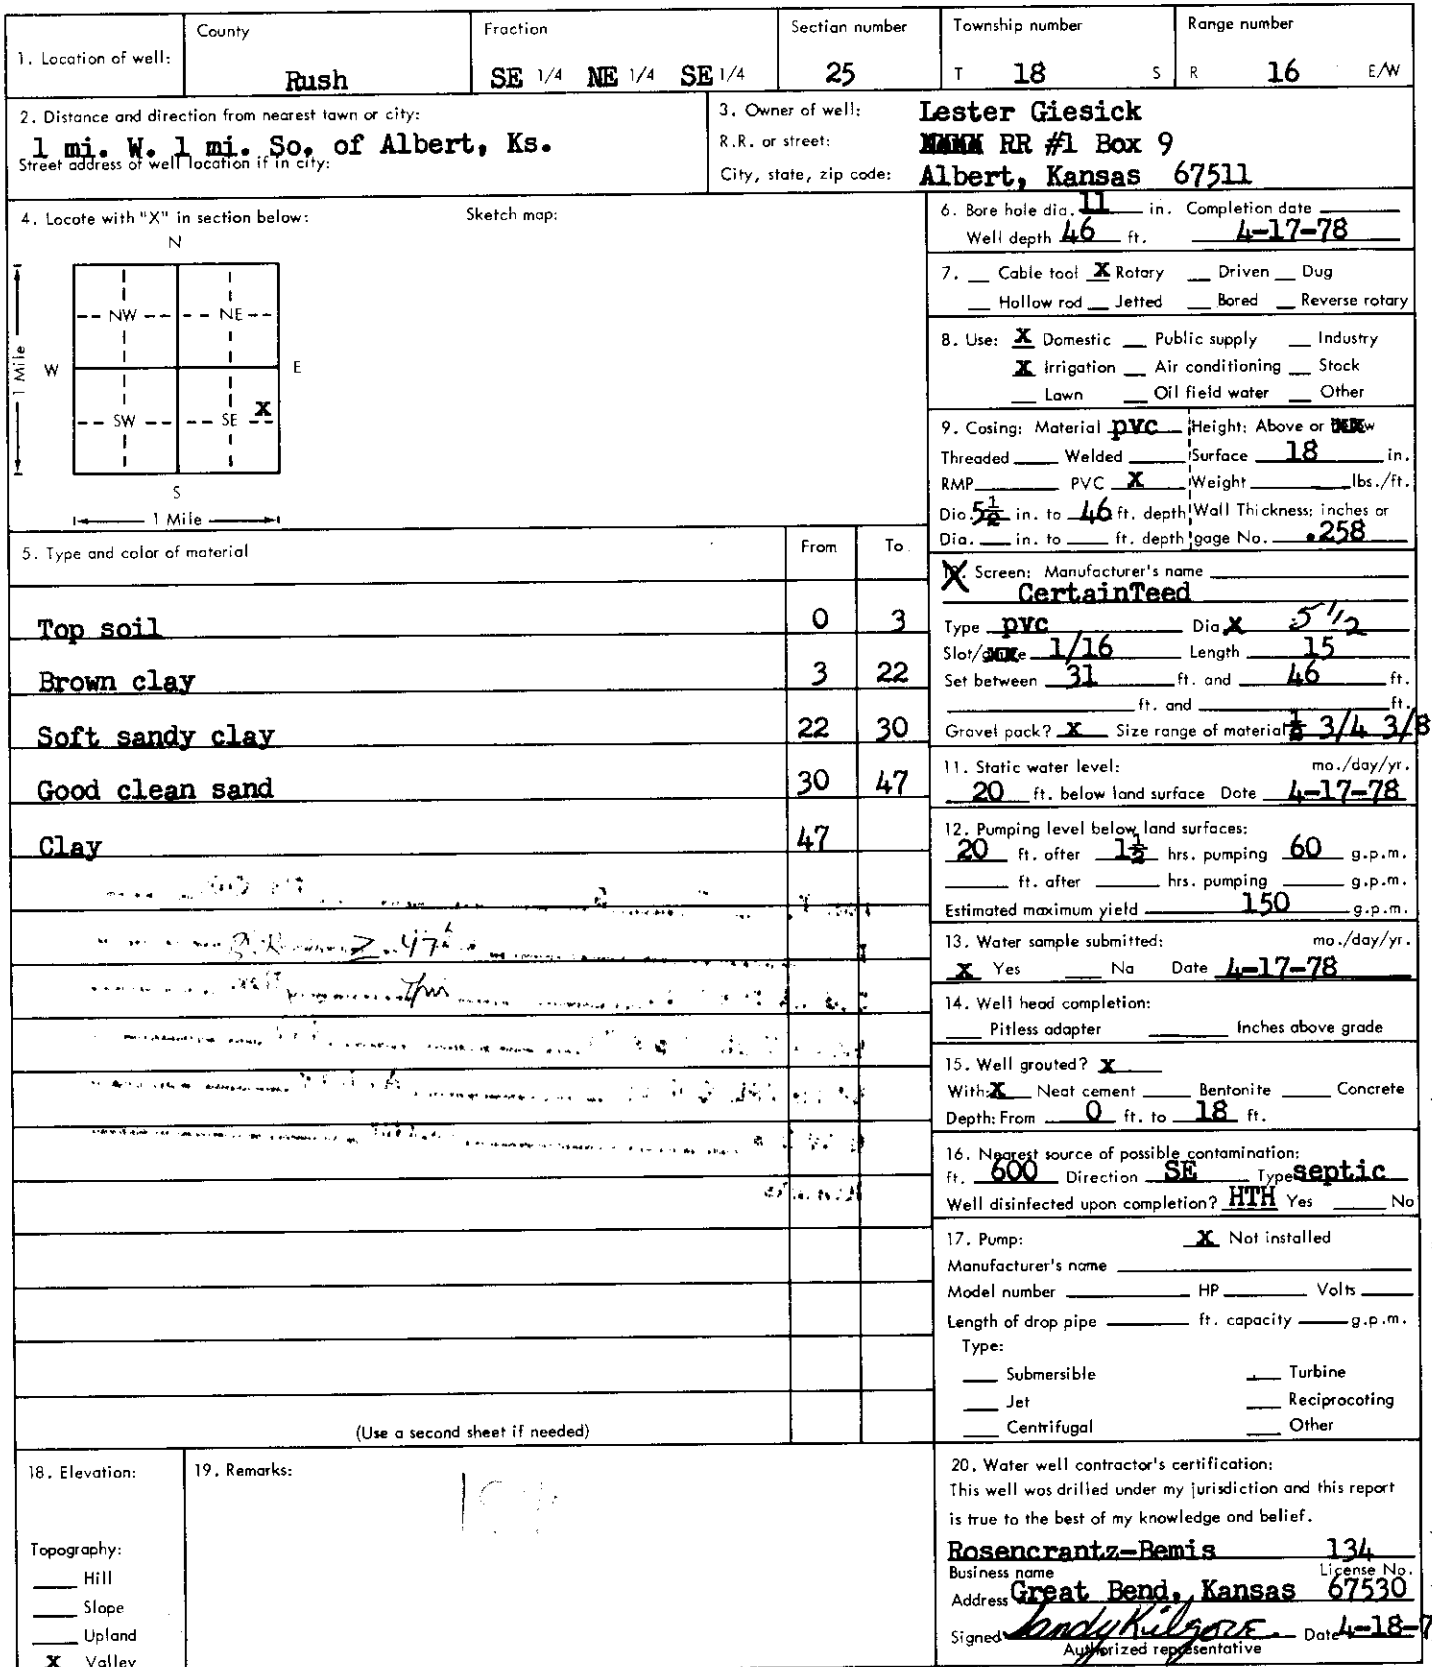 County
Fraction
Section number
Township number
Range number
1. Location of well:
Rush
SE 1/4 NE 1/4 SE 1/4
25
T 18 S
R 16 E/W
2. Distance and direction from nearest town or city:
1 mi. W. 1 mi. So. of Albert, Ks.
Street address of well location if in city:
3. Owner of well: Lester Giesick
R.R. or street: RR #1 Box 9
City, state, zip code: Albert, Kansas 67511
4. Locate with "X" in section below:
Sketch map:
N
NW NE
W E
1 Mile
SW SE X
S
1 Mile
5. Type and color of material From To
Top soil 0 3
Brown clay 3 22
Soft sandy clay 22 30
Good clean sand 30 47
Clay 47
(Use a second sheet if needed)
6. Bore hole dia. 11 in. Completion date
Well depth 46 ft. 4-17-78
7. Cable tool X Rotary Driven Dug
Hollow rod Jetted Bored Reverse rotary
8. Use: X Domestic Public supply Industry
X Irrigation Air conditioning Stock
Lawn Oil field water Other
9. Casing: Material pvc Height: Above or
Threaded Welded Surface 18 in.
RMP PVC X Weight lbs./ft.
Dia. 5½ in. to 46 ft. depth Wall Thickness: inches or
Dia. in. to ft. depth gage No. .258
10. Screen: Manufacturer's name
CertainTeed
Type pvc Dia X 5 1/2
Slot/ 1/16 Length 15
Set between 31 ft. and 46 ft.
ft. and ft.
Gravel pack? X Size range of material ½ 3/4 3/8
11. Static water level: mo./day/yr.
20 ft. below land surface Date 4-17-78
12. Pumping level below land surfaces:
20 ft. after 1½ hrs. pumping 60 g.p.m.
ft. after hrs. pumping g.p.m.
Estimated maximum yield 150 g.p.m.
13. Water sample submitted: mo./day/yr.
X Yes No Date 4-17-78
14. Well head completion:
Pitless adapter Inches above grade
15. Well grouted? X
With: X Neat cement Bentonite Concrete
Depth: From 0 ft. to 18 ft.
16. Nearest source of possible contamination:
ft. 600 Direction SE Type septic
Well disinfected upon completion? HTH Yes No
17. Pump: X Not installed
Manufacturer's name
Model number HP Volts
Length of drop pipe ft. capacity g.p.m.
Type:
Submersible Turbine
Jet Reciprocating
Centrifugal Other
18. Elevation:
Topography:
Hill
Slope
Upland
X Valley
19. Remarks:
20. Water well contractor's certification:
This well was drilled under my jurisdiction and this report
is true to the best of my knowledge and belief.
Rosencrantz-Bemis 134
Business name License No.
Address Great Bend, Kansas 67530
Signed Sandy Kilgore Date 4-18-7
Authorized representative